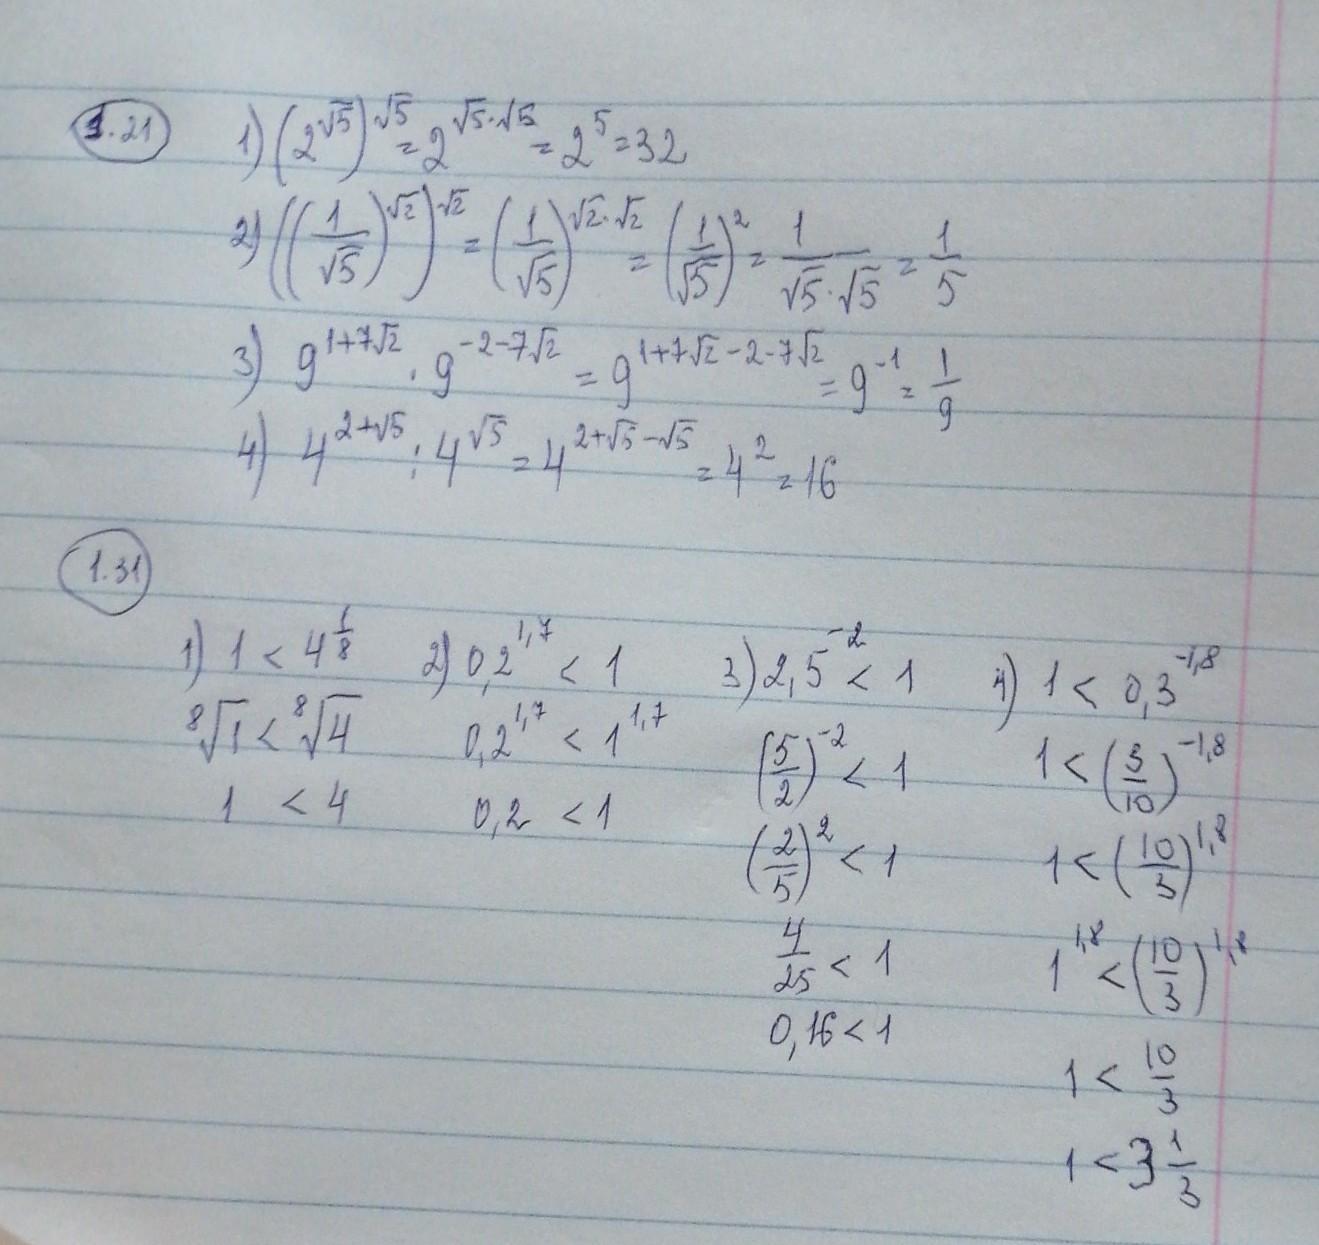 1.21
1) (2^√5)^√5 = 2^(√5·√5) = 2^5 = 32
2) ((1/√5)^√2)^√2 = (1/√5)^(√2·√2) = (1/√5)^2 = 1/(√5·√5) = 1/5
3) 9^(1+7√2) · 9^(-2-7√2) = 9^(1+7√2-2-7√2) = 9^-1 = 1/9
4) 4^(2+√5) : 4^√5 = 4^(2+√5-√5) = 4^2 = 16
1.31
1) 1 < 4^(1/8)
⁸√1 < ⁸√4
1 < 4
2) 0,2^1,7 < 1
0,2^1,7 < 1^1,7
0,2 < 1
3) 2,5^-2 < 1
(5/2)^-2 < 1
(2/5)^2 < 1
4/25 < 1
0,16 < 1
4) 1 < 0,3^-1,8
1 < (3/10)^-1,8
1 < (10/3)^1,8
1^1,8 < (10/3)^1,8
1 < 10/3
1 < 3 1/3